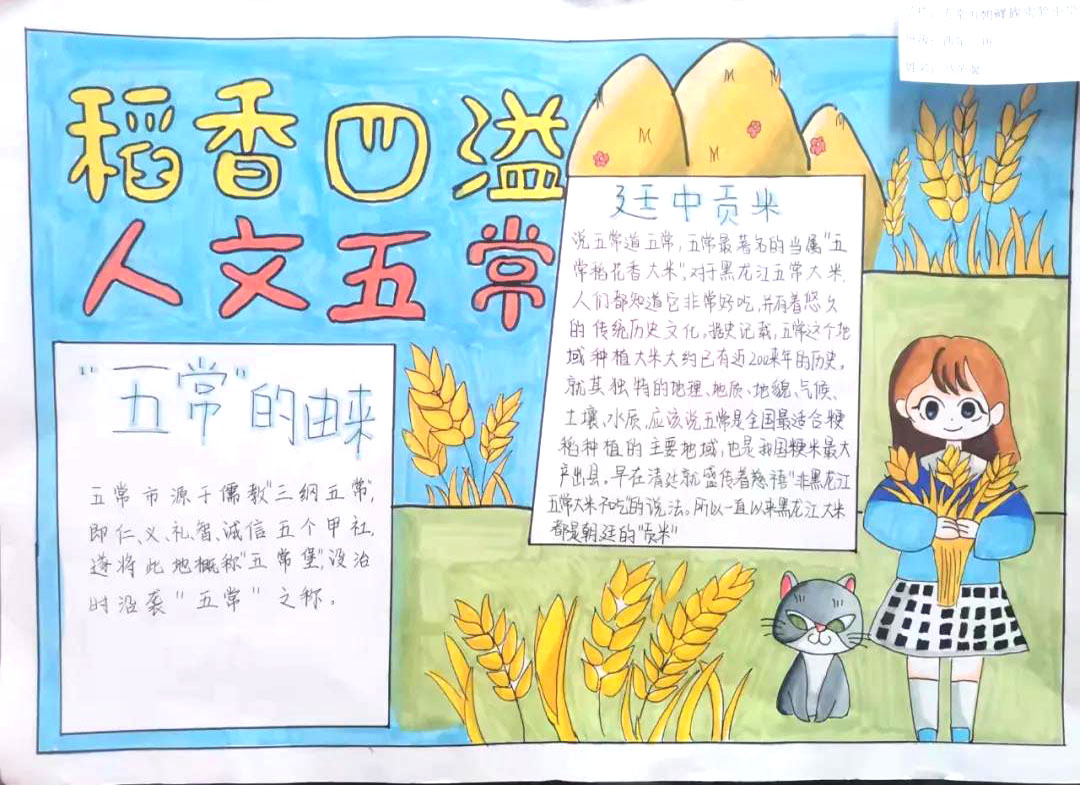 稻香四溢
人文五常
廷中贡米
说五常道五常，五常最著名的当属"五
常稻花香大米"，对于黑龙江五常大米，
人们都知道它非常好吃，并有着悠久
的传统历史文化，据史记载，五常这个地
域种植大米大约已有近200来年的历史，
就其独特的地理、地质、地貌、气候、
土壤、水质，应该说五常是全国最适合粳
稻种植的主要地域，也是我国粳米最大
产出县。早在清处就盛传着慈禧"非黑龙江
五常大米不吃的说法。所以一直以来黑龙江大米
都是朝廷的"贡米"
"五常"的由来
五常市源于儒教"三纲五常"，
即仁、义、礼、智、诚信五个甲社，
遂将此地概称"五常堡"，设治
时沿袭"五常"之称。